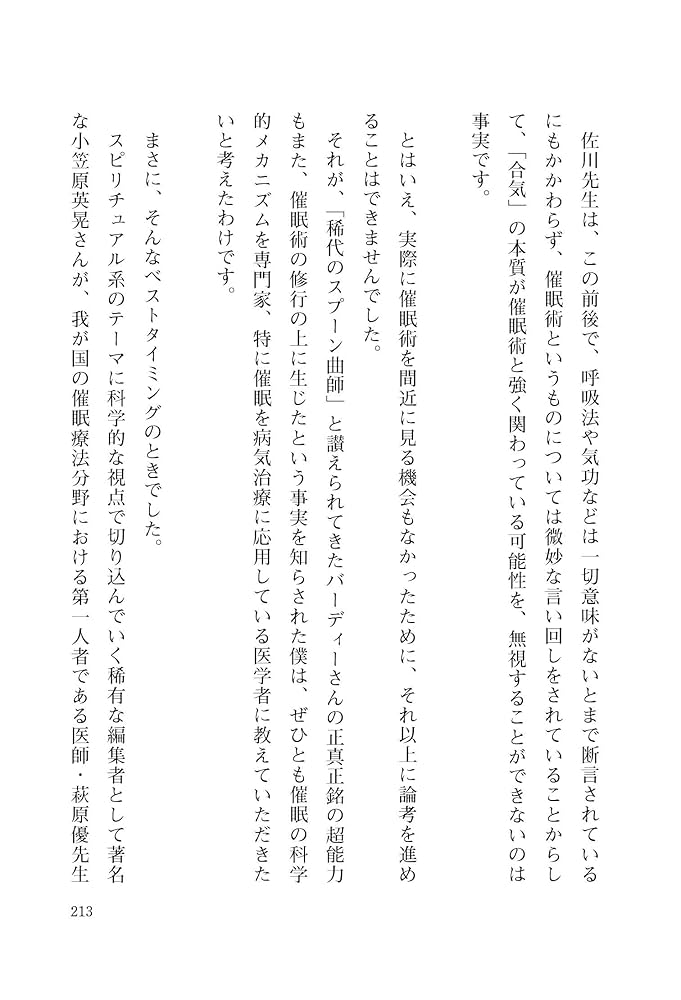 佐川先生は、この前後で、呼吸法や気功などは一切意味がないとまで断言されている
にもかかわらず、催眠術というものについては微妙な言い回しをされていることからし
て、「合気」の本質が催眠術と強く関わっている可能性を、無視することができないのは
事実です。
とはいえ、実際に催眠術を間近に見る機会もなかったために、それ以上に論考を進め
ることはできませんでした。
それが、「稀代のスプーン曲師」と讃えられてきたバーディーさんの正真正銘の超能力
もまた、催眠術の修行の上に生じたという事実を知らされた僕は、ぜひとも催眠の科学
的メカニズムを専門家、特に催眠を病気治療に応用している医学者に教えていただきた
いと考えたわけです。
まさに、そんなベストタイミングのときでした。
スピリチュアル系のテーマに科学的な視点で切り込んでいく稀有な編集者として著名
な小笠原英晃さんが、我が国の催眠療法分野における第一人者である医師・萩原優先生
213